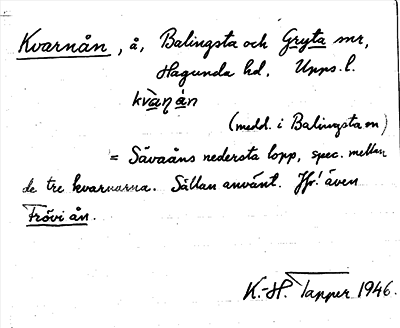 Kvarnån, å, Balingsta och Gryta snr,
Hagunda hd, Upps. l.
kvàṇán
(medd. i Balingsta sn)
= Sävaåns nedersta lopp, spec. mellan
de tre kvarnarna. Sällan använt. Jfr! även
Frövi ån.
K.-H. Tapper 1946.